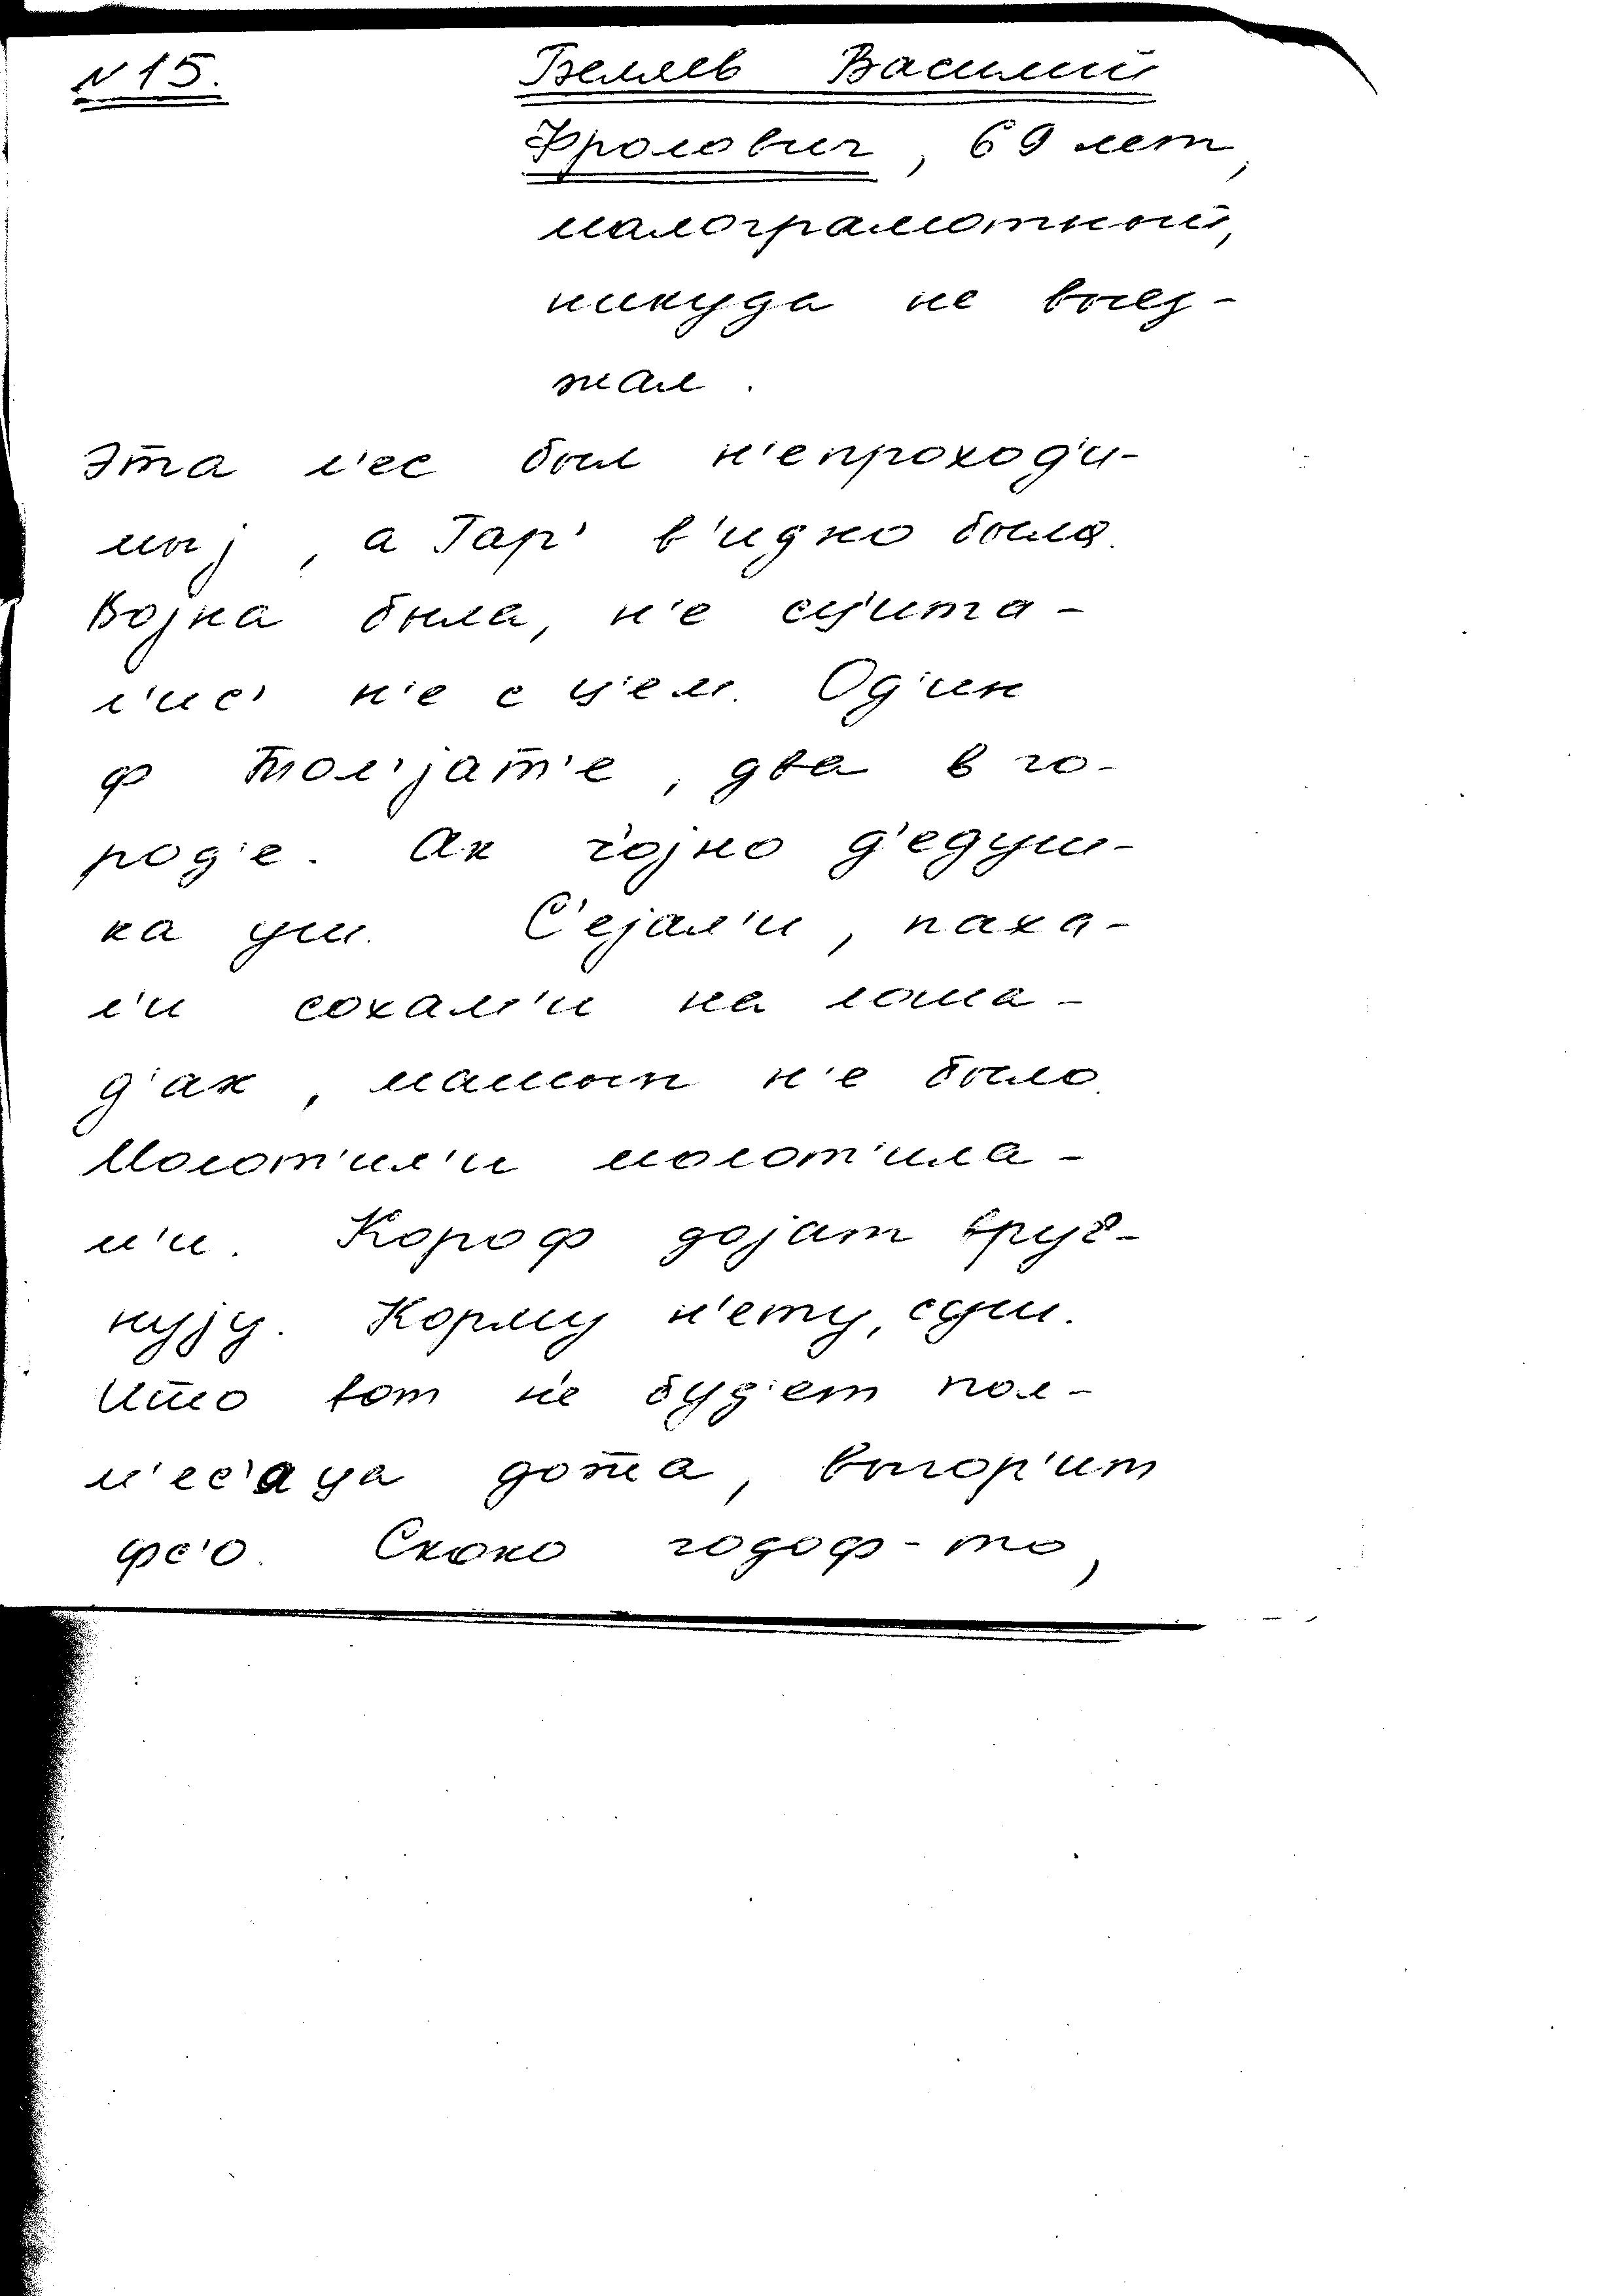 N 15. Беляев Василий
Фролович, 69 лет,
малограмотный,
никуда не выез-
жал.
Эта л'ес был н'епроход'и-
мыј, а Гар' в'идно была.
Војна была, н'е сц'ита-
л'ис' н'е с ц'ем. Од'ин
ф Тол'јат'е, два в го-
род'е. Ак војно д'едуш-
ка уш. С'ејал'и, паха-
л'и сохам'и на лоша-
д'ах, машын н'е было.
Молот'ил'и молот'ила-
м'и. Короф дојат вруч-
нују. Корму н'ету, суш.
Што вот н'е буд'ет пол-
м'ес'аца дотa, выгор'ит
фс'о. Скоко годоф-то,